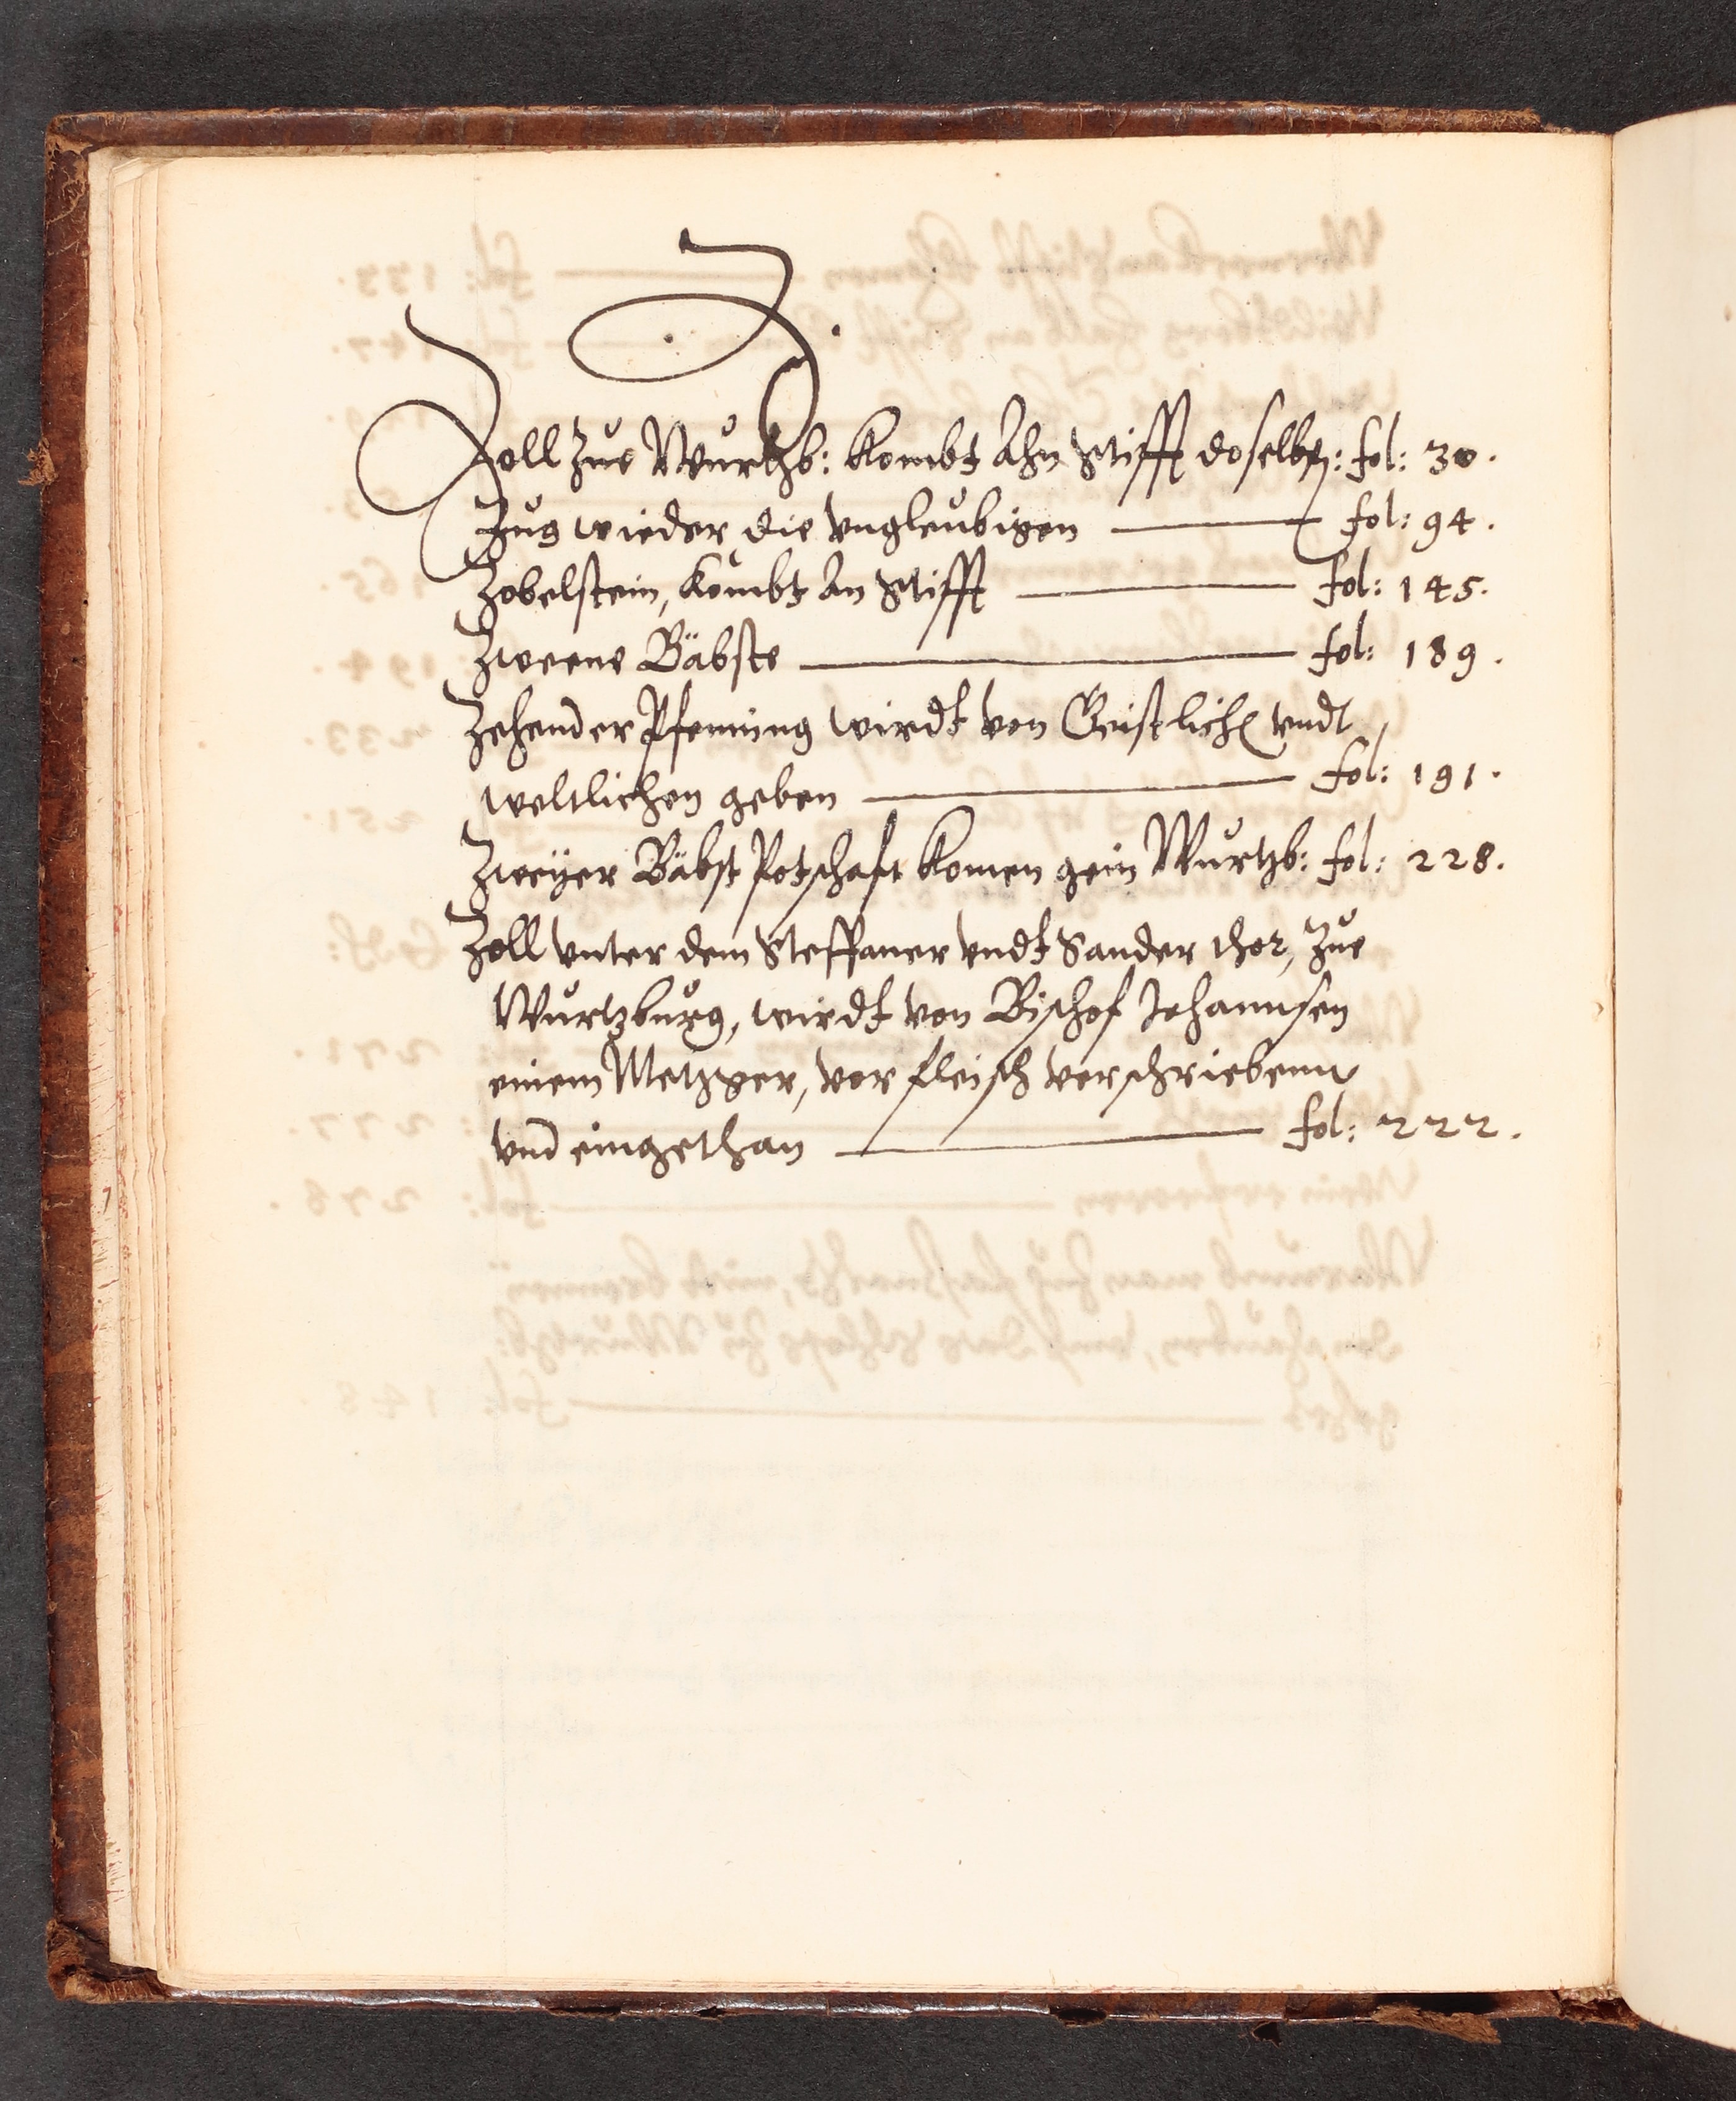 Z.
Zoll Zue Würtzb: Kombt Ahn Stifft doselbst: fol: 30.
Zug wieder die Vngleubigen fol: 94.
Zobelstein, Kombt An Stifft fol: 145.
Zweene Bäbste fol: 189.
Zehender Pfenning wirdt von Geistlich vndt
weltlichen geben fol: 191.
Zweÿer Bäbst Potschaft Komen gein Würtzb: fol: 228.
Zoll vnter dem Steffaner vndt Sander thor, Zue
Würtzburg, wirdt von Bischof Johannsen
einem Metzger, vor fleisch verschriebenn
vnd eingethan fol: 222.